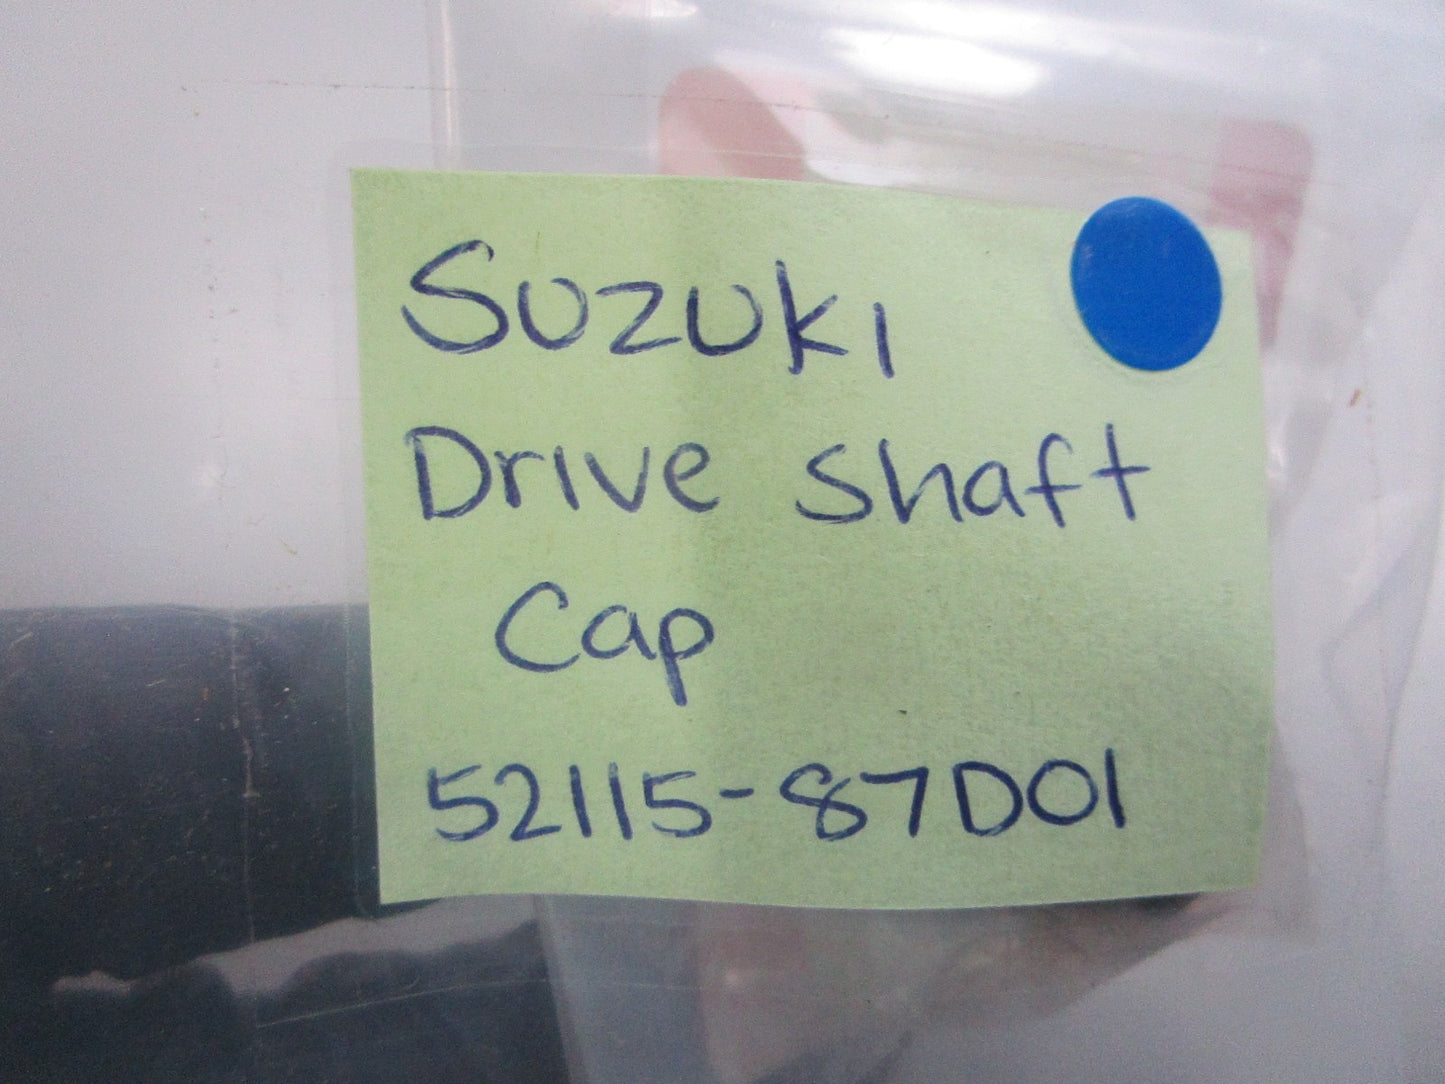 Suzuki
Drive shaft
Cap
52115-87D01